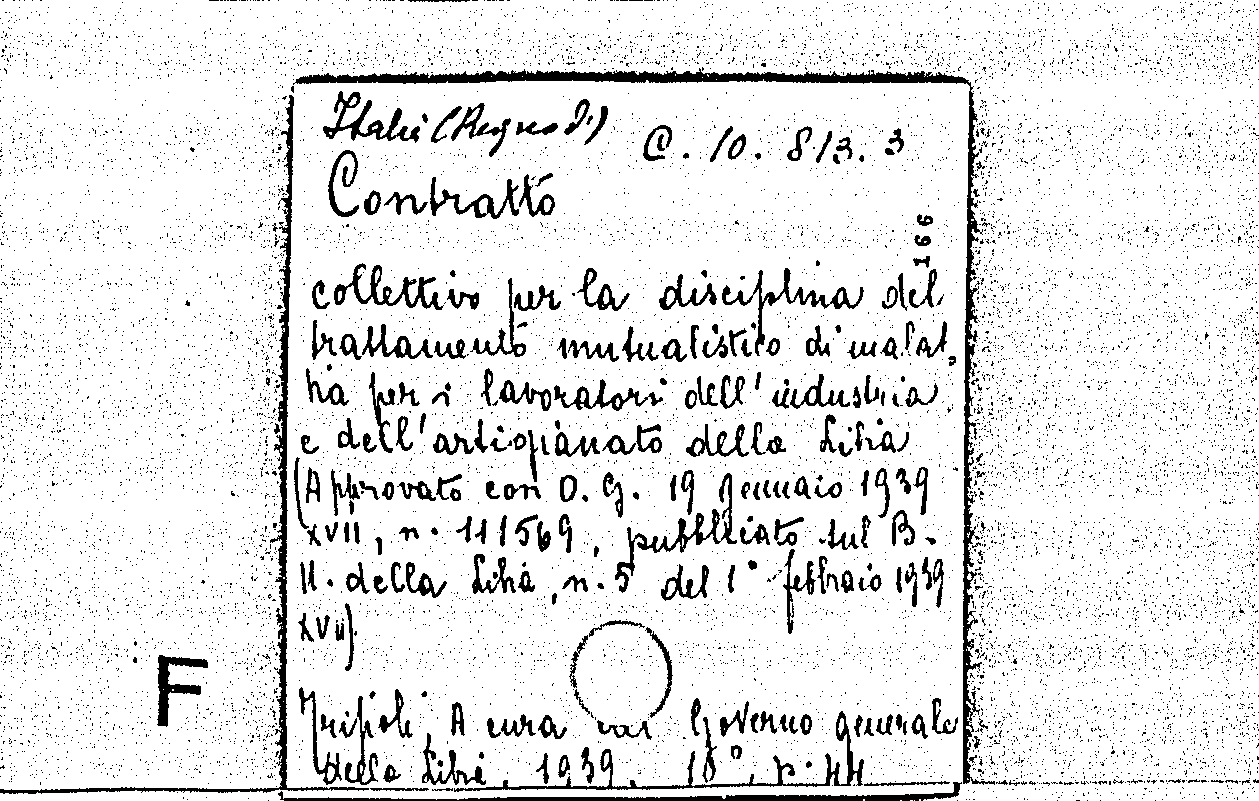 Italia (Regno d')
C. 10. 813. 3
Contratto
166
collettivo per la disciplina del
trattamento mutualistico di malat,
tia per i lavoratori dell'industria
e dell'artigianato della Libia
(Approvato con D. G. 19 gennaio 1939
XVII, n. 111569, pubblicato sul B.
U. della Libia, n. 5 del 1° febbraio 1939
XVII).
F
Tripoli, A cura Governo generale
della Libia, 1939. p. 44